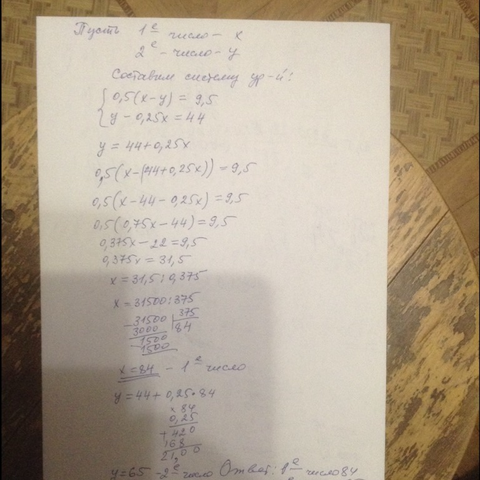 Пусть 1е число - x
2е - число - y
Составим систему ур-й:
0,5(x-y) = 9,5
y - 0,25x = 44
y = 44+0,25x
0,5(x-(44+0,25x)) = 9,5
0,5(x-44-0,25x) = 9,5
0,5(0,75x-44) = 9,5
0,375x - 22 = 9,5
0,375x = 31,5
x = 31,5 : 0,375
x = 31500 : 375
-31500 | 375
3000 | 84
-1500
1500
x = 84 - 1е число
y = 44 + 0,25 * 84
x 84
0,25
+ 420
168
21,00
y = 65 - 2е число Ответ: 1е число 84